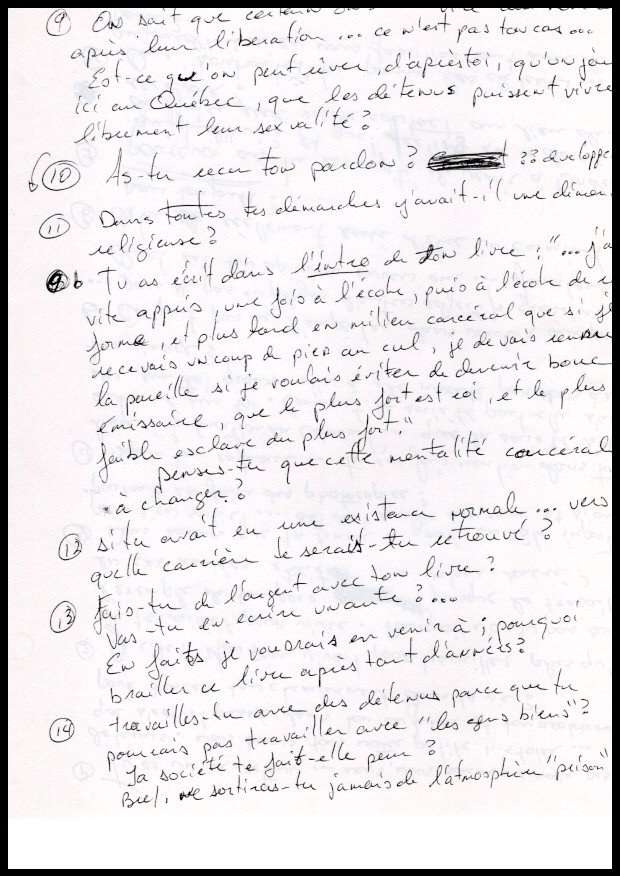 ⑨ On sait que certain
après leur libération ... ce n'est pas ton cas ...
Est-ce qu'on peut rêver, d'après toi, qu'un jou
ici au Québec, que les détenus puissent vivre
librement leur sexualité?
⑩ As-tu reçu ton pardon? ?? développe
⑪ Dans toutes tes démarches y avait-il une dimen
religieuse?
9 b Tu as écrit dans l'intro de ton livre: "... j'a
vite appris, une fois à l'école, puis à l'école de r
forme, et plus tard en milieu carcéral que si je
recevais un coup de pied au cul, je devais rendre
la pareille si je voulais éviter de devenir bouc
émissaire, que le plus fort est roi, et le plus
faible esclave du plus fort."
penses-tu que cette mentalité carcéral
à changer?
⑫ si tu avait eu une existence normale ... vers
quelle carrière te serais-tu retrouvé?
⑬ Fais-tu de l'argent avec ton livre?
Vas-tu en écrire un autre? ...
En faits je voudrais en venir à; pourquoi
brailler ce livre après tant d'années?
⑭ travailles-tu avec des détenus parce que tu
pourrais pas travailler avec "les gens biens"?
La société te fait-elle peur?
Bref, ne sortiras-tu jamais de l'atmosphère "prison"